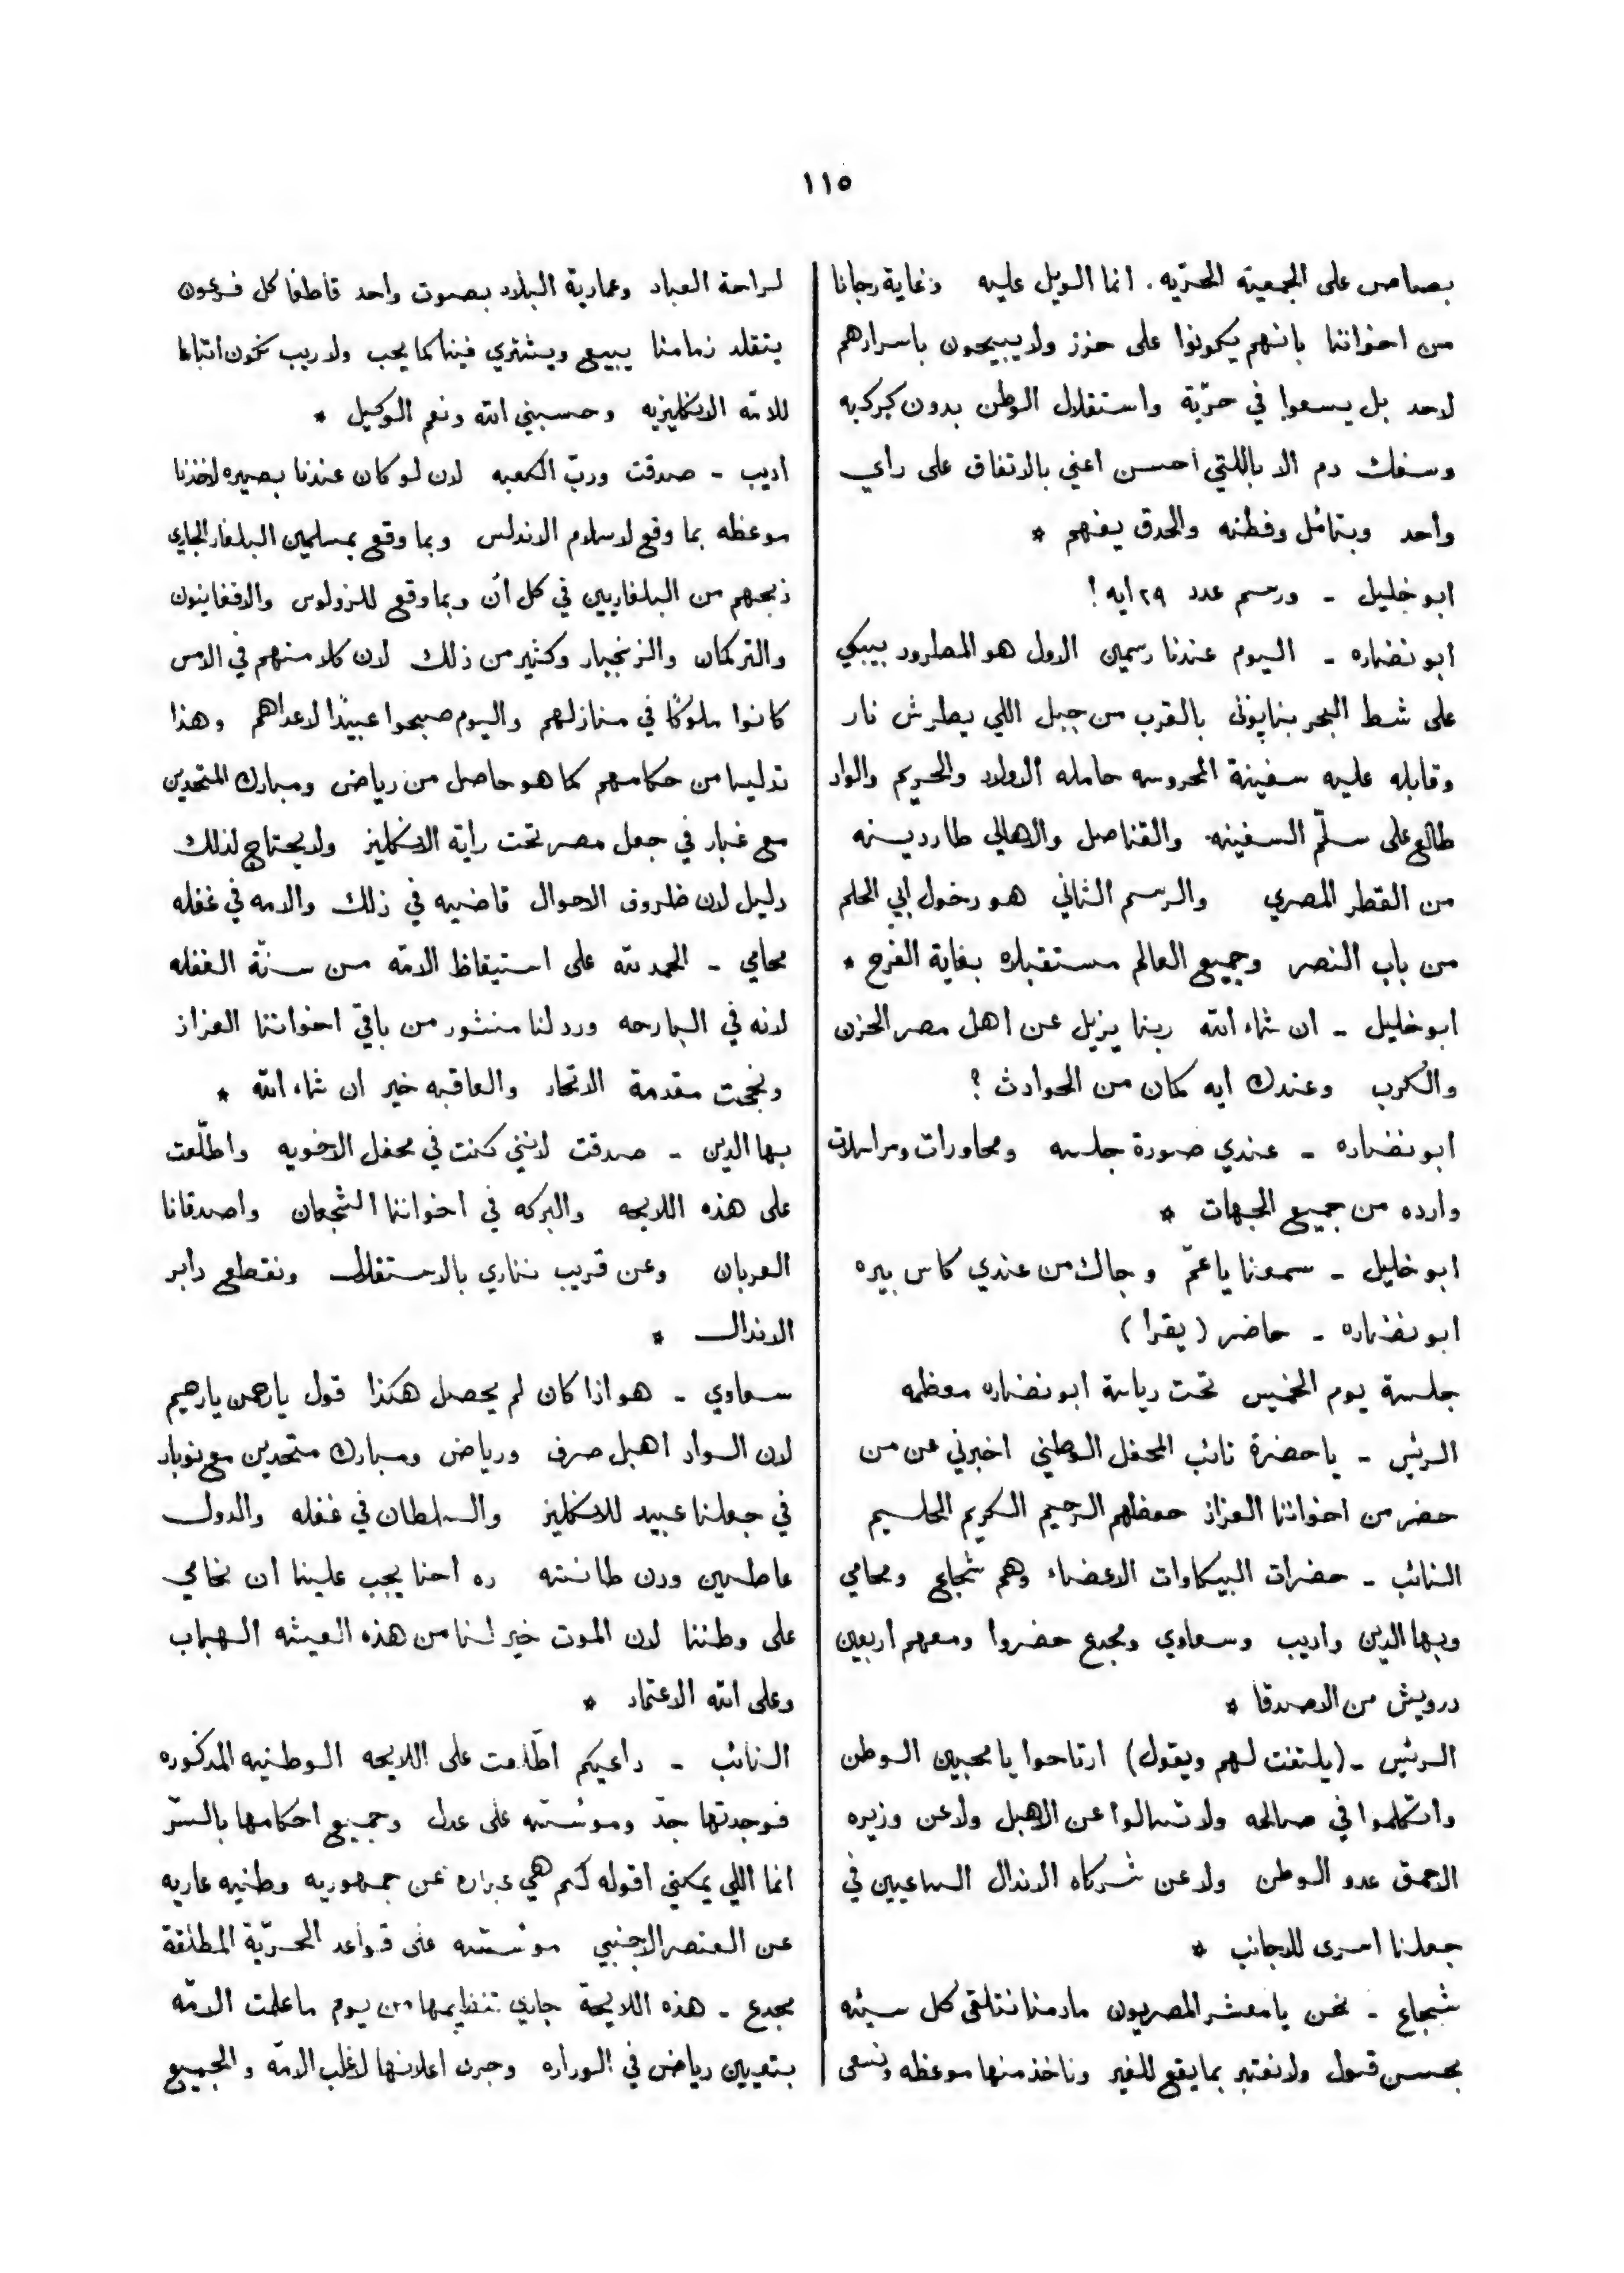 ١١٥
بصاص على الجمعية الحريه. انما الويل عليه وغاية رجانا
من اخواننا بانهم يكونوا على حزز ولا يبيحون باسرارهم
لاحد بل يسعوا في حرّية واستقلال الوطن بدون كركبه
وسفك دم الا باللتي احسن اعني بالاتفاق على راي
واحد وبتامّل وفطنه والحدق يفهم *
ابو خليل - ورسم عدد ٢٩ ايه !
ابو نضاره - اليوم عندنا رسمين الاول هو المطرود بيبكي
على شط البحر بنابولي بالقرب من جبل اللي يطرش نار
وقابله عليه سفينة المحروسه حامله الاولاد والحريم والواد
طالع على سلّم السفينه والقناصل والاهالي طاردينه
من القطر المصري والرسم الثاني هو دخول ابي الحلم
من باب النصر وجميع العالم مستقبلاه بغاية الفرح *
ابو خليل - ان شاء الله ربنا يزيل عن اهل مصر الحزن
والكرب وعندك ايه كمان من الحوادث ؟
ابو نضاره - عندي صورة جلسه ومحاورات ومراسلات
وارده من جميع الجهات *
ابو خليل - سمعنا ياعمّ وجالك من عندي كاس بيره
ابو نضاره - حاضر (يقرا)
جلسة يوم الخميس تحت رياسة ابو نضاره معظمه
الرئيس - ياحضرة نائب المحفل الوطني اخبرني عن من
حضر من اخواننا العزاز حفظهم الرحيم الكريم الحليم
النائب - حضرات البيكاوات الاعضاء وهم شجاع ومحامي
وبها الدين واديب وسعاوي ومجدع حضروا ومعهم اربعين
درويش من الاصدقا *
الرئيس - (يلتفت لهم ويقول) ارتاحوا يا محبين الوطن
واتكلموا في صالحه ولا تسالوا عن الاهبل ولا عن وزيره
الاحمق عدو الوطن ولا عن شركاه الاندال الساعيين في
جعلنا اسرى للاجانب *
شجاع - نحن يا معشر المصريون مادمنا نتلقى كل سيئه
بحسن قبول ولا نعتبر بما يقع للغير وناخذ منها موعظه ونسعى
لراحة العباد وعمارية البلاد بصوت واحد قاطفا كل فرعون
يتقلد زمامنا يبيع ويشتري فينا كما يحب ولا ريب نكون اتباعا
للامّه الانكليزيه وحسبني الله ونعم الوكيل *
اديب - صدقت وربّ الكعبه لان لو كان عندنا بصيره لاخذنا
موعظه بما وقع لاسلام الاندلس وبما وقع بمسلمين البلغار الجاري
ذبحهم من البلغاريين في كل آن وبما وقع للزولوس والافغانيون
والتركمان والزنجبار وكثير من ذلك لان كلا منهم في الامس
كانوا ملوكًا في منازلهم واليوم صبحوا عبيدًا لاعداهم وهذا
تدليسا من حكامهم كما هو حاصل من رياض ومبارك المتحدين
مع غبار في جعل مصر تحت راية الانكليز ولا يحتاج لذلك
دليل لان ظروف الاحوال قاضيه في ذلك والامه في غفله
محامي - الحمد لله على استيقاظ الامّه من سنّة الغفله
لانه في البارحه ورد لنا منشور من باقي اخواننا العزاز
ونجحت مقدمة الاتحاد والعاقبه خير ان شاء الله *
بها الدين - صدقت لانني كنت في محفل الاخويه واطّلعت
على هذه اللايحه والبركه في اخواننا الشجعان واصدقانا
العربان وعن قريب ننادي بالاستقلال ونقطع دابر
الاندال *
سعاوي - هو اذا كان لم يحصل هكذا قول يارحمن يارحيم
لان الواد اهبل صرف ورياض ومبارك متحدين مع نوبار
في جعلنا عبيد للانكليز والسلطان في غفله والدول
عاطيين ودن طانشه ده احنا يجب علينا ان نحامي
على وطننا لان الموت خير لنا من هذه العيشه الهباب
وعلى الله الاعتماد *
النائب - داعيكم اطّلعت على اللايحه الوطنيه المذكوره
فوجدتها جدّ وموسّسه على عدل وجميع احكامها بالسّر
انما اللي يمكني اقوله لكم هي عباره عن جمهوريه وطنيه عاريه
عن العنصر الاجنبي موسّسه على قواعد الحرّية المطلقة
مجدع - هذه اللايحة جاري تنظيمها من يوم ما علمت الامّه
بتعيين رياض في الوزاره وجرى اعلانها لاغلب الامّه والجميع